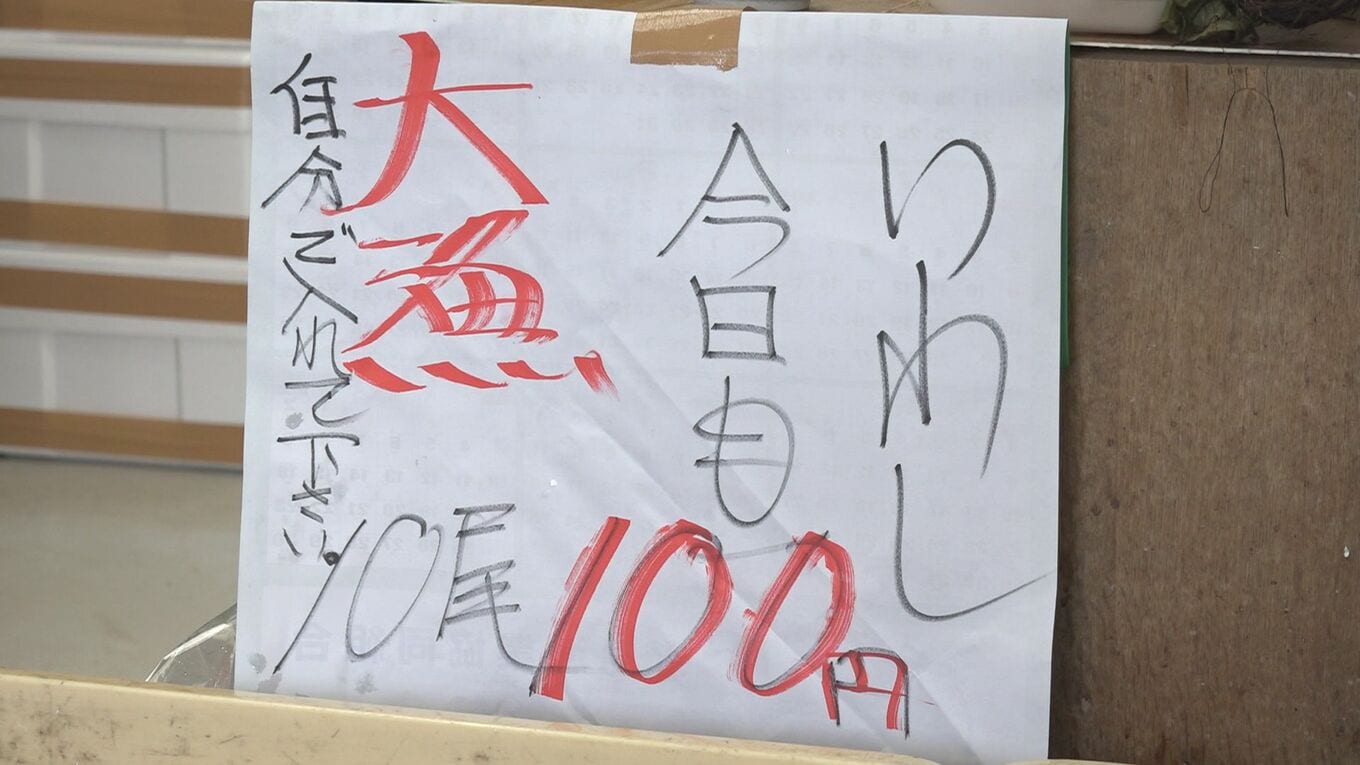 いわし
今日も
大漁
自分で入れて下さい。
10尾100円